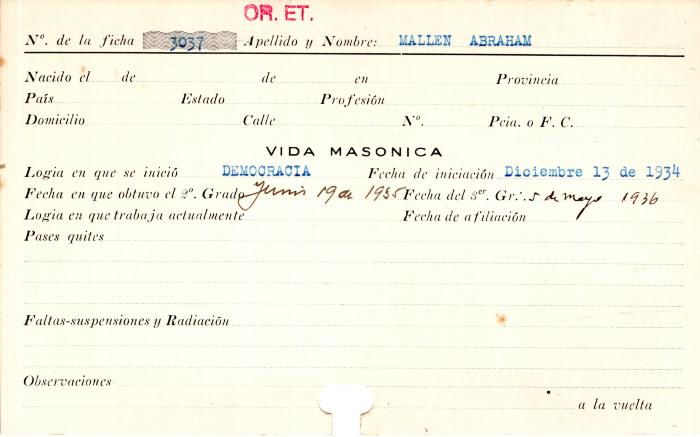 OR. ET.
Nº. de la ficha 3037 Apellido y Nombre: MALLEN ABRAHAM
Nacido el de de en Provincia
País Estado Profesión
Domicilio Calle Nº. Pcia. o F. C.
VIDA MASONICA
Logia en que se inició DEMOCRACIA Fecha de iniciación Diciembre 13 de 1934
Fecha en que obtuvo el 2º. Grado Junio 19 de 1935 Fecha del 3er. Gr∴ 5 de mayo 1936
Logia en que trabaja actualmente Fecha de afiliación
Pases quites
Faltas-suspensiones y Radiación
Observaciones
a la vuelta